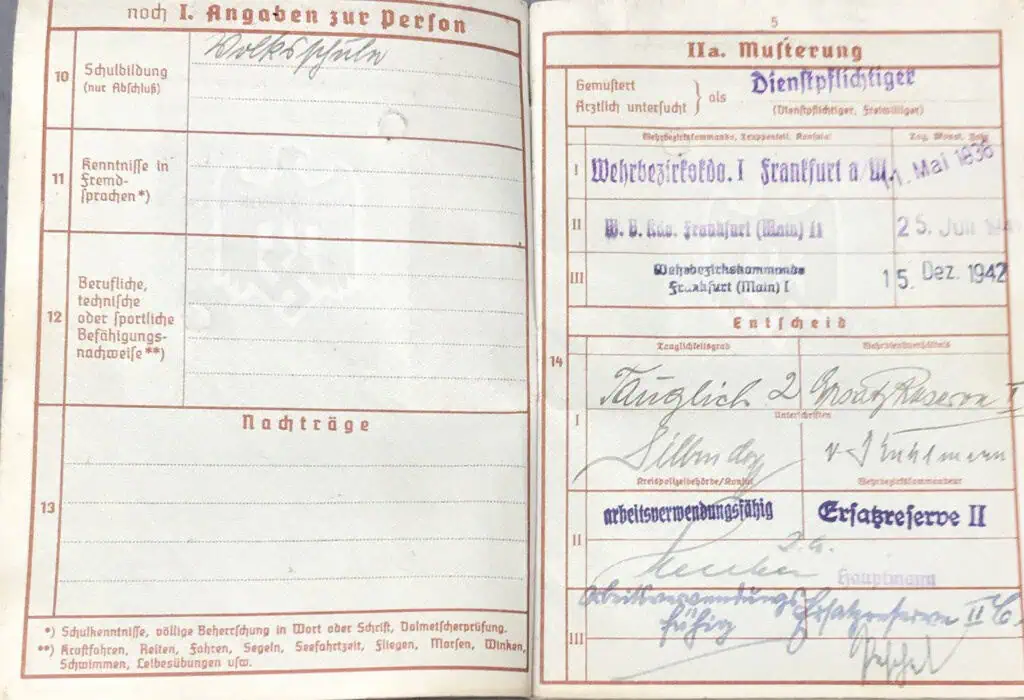 noch I. Angaben zur Person
10
Schulbildung
(nur Abschluß)
Volksschule
11
Kenntnisse in
Fremd-
sprachen*)
12
Berufliche,
technische
oder sportliche
Befähigungs-
nachweise**)
Nachträge
13
*) Schulkenntnisse, völlige Beherrschung in Wort oder Schrift, Dolmetscherprüfung.
**) Kraftfahren, Reiten, Fahren, Segeln, Seefahrtzeit, Fliegen, Morsen, Winken,
Schwimmen, Leibesübungen usw.
5
IIa. Musterung
Gemustert
Ärztlich untersucht } als Dienstpflichtiger
(Dienstpflichtiger, Freiwilliger)
Wehrbezirkskommando, Truppenteil, Tag, Monat, Jahr
I Wehrbezirkskdo. I Frankfurt a/M. Mai
II W. B. Kdo. Frankfurt (Main) II 25. Juli
III Wehrbezirkskommando
Frankfurt (Main) I 15. Dez. 1942
Entscheid
14
Tauglichkeitsgrad Wehrdienstverhältnis
I Tauglich 2 Ersatz Reserve I
Unterschriften
Kreispolizeibehörde/Konsul Wehrbezirkskommandeur
II arbeitsverwendungsfähig Ersatzreserve II
Hauptmann
III Arbeitsverwendungs- Ersatzreserve II
fähig